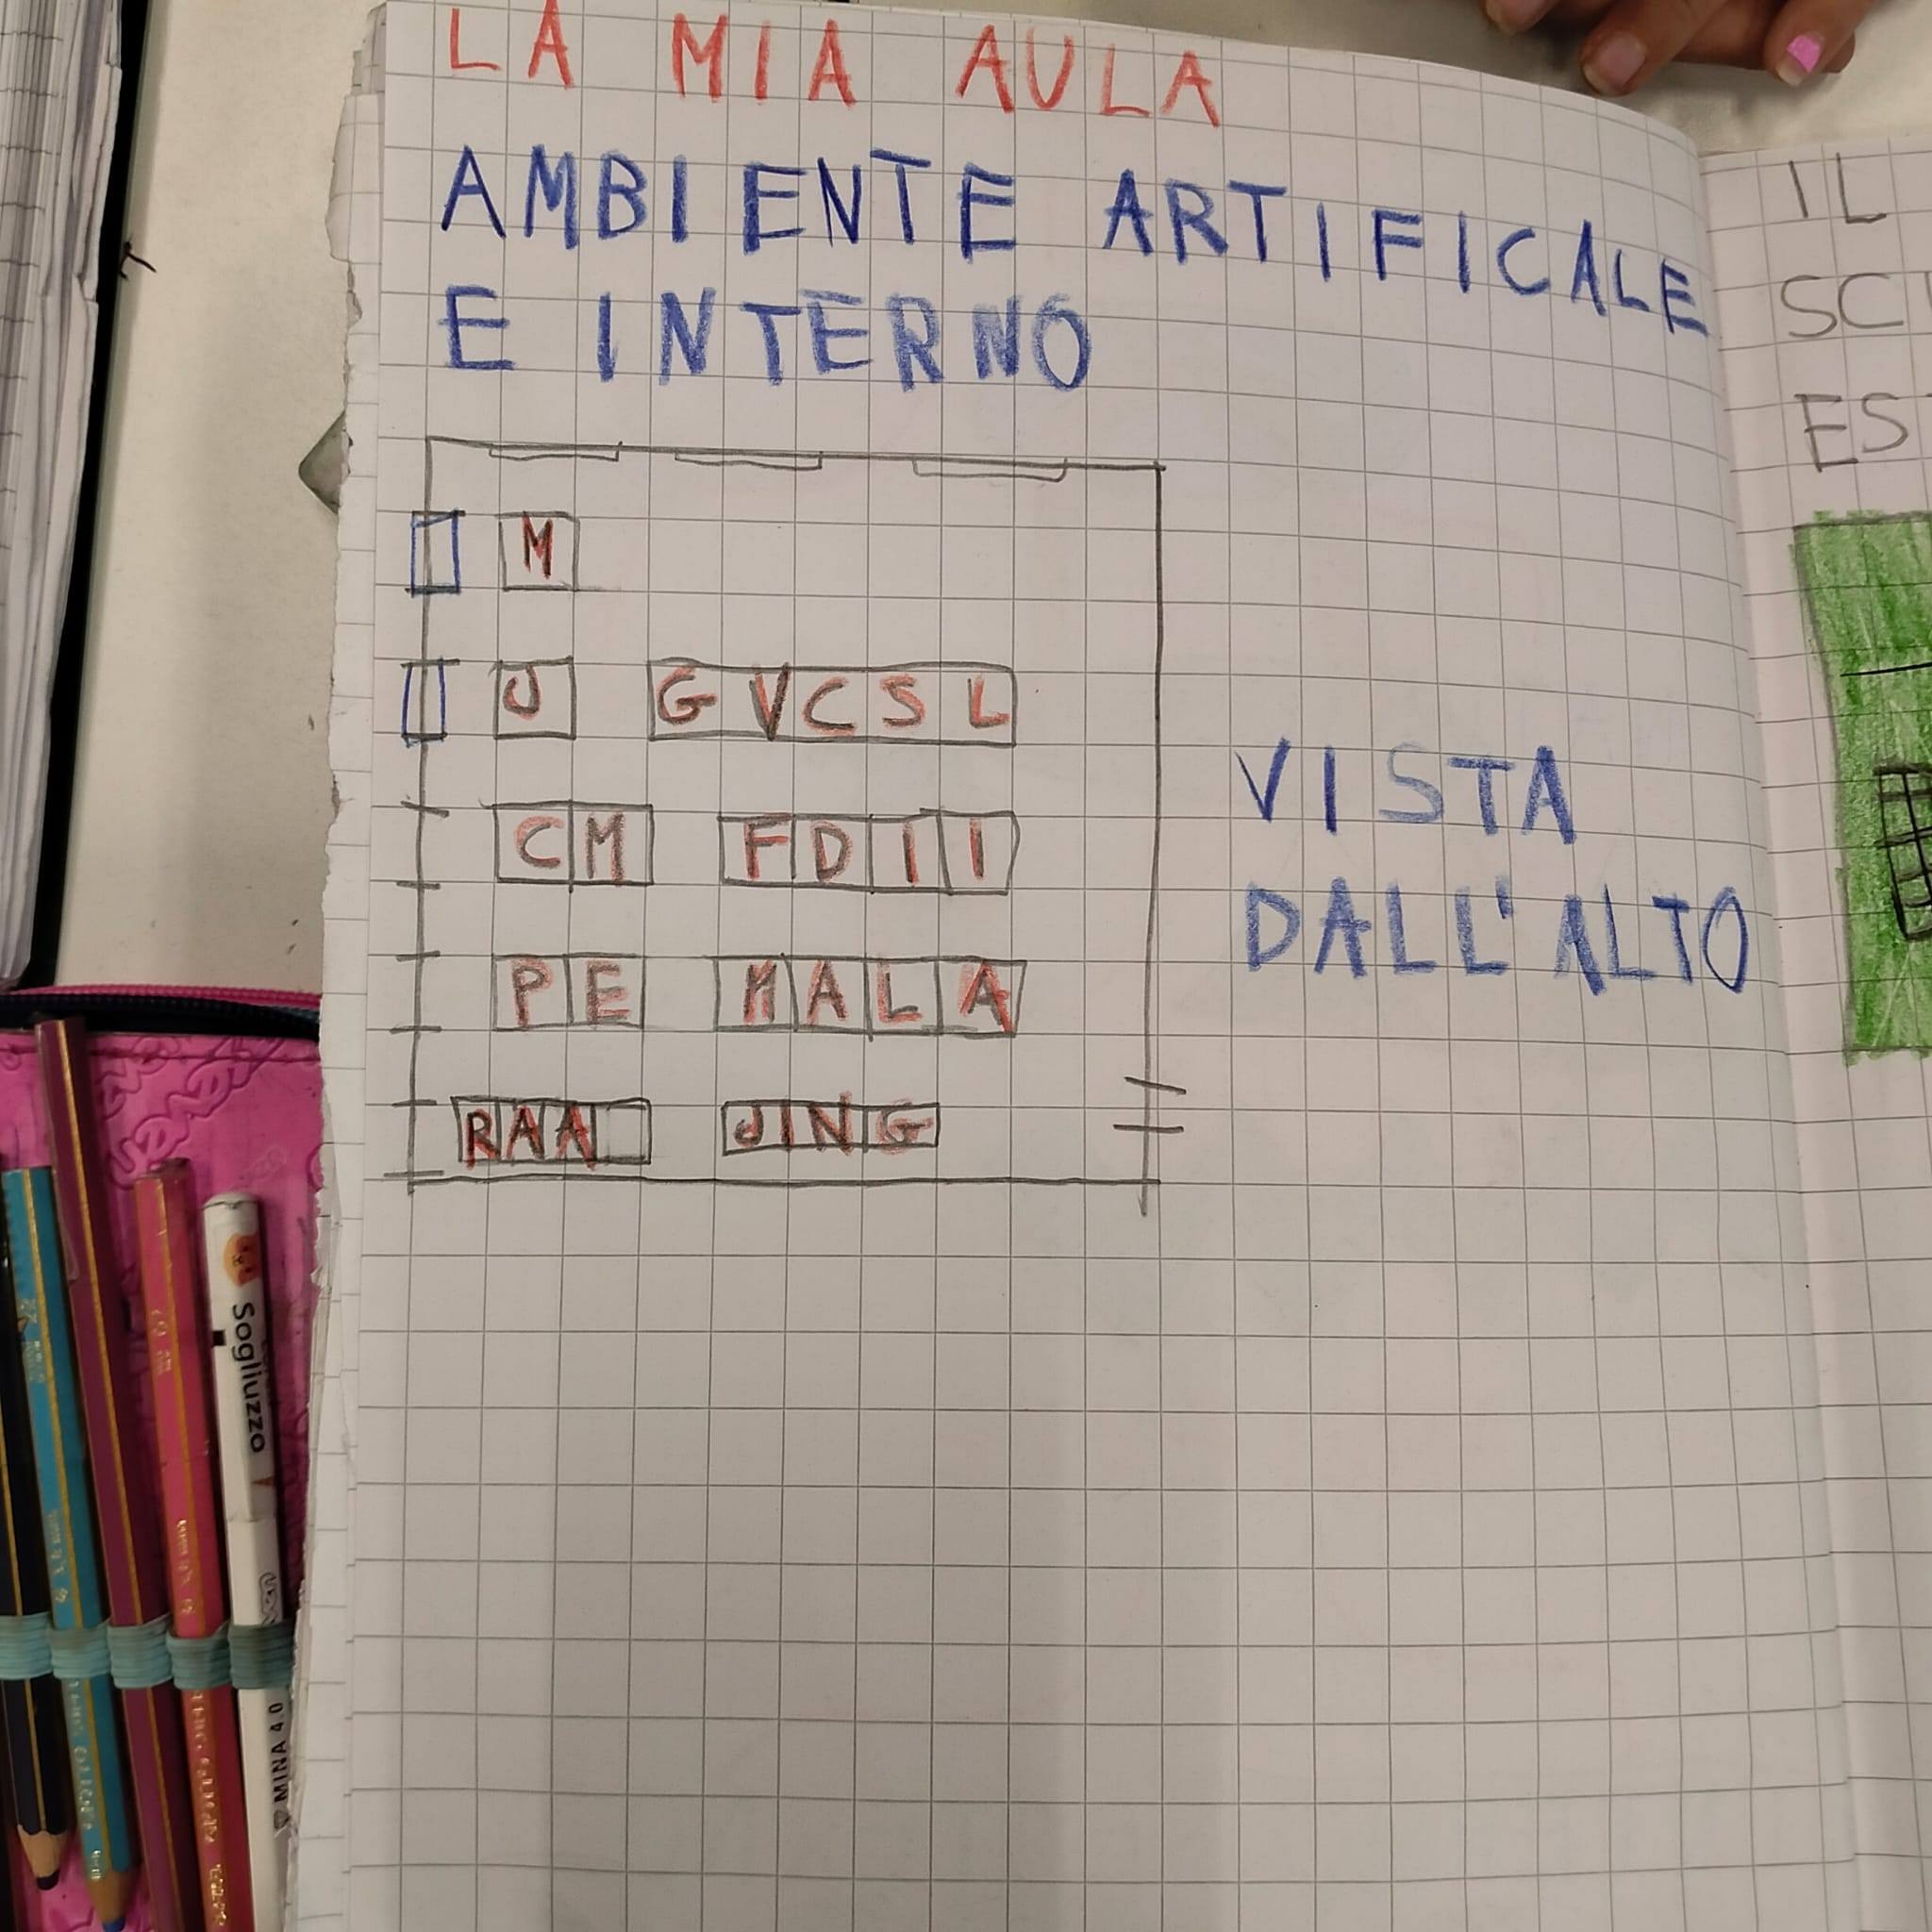 LA MIA AULA
AMBIENTE ARTIFICALE
E INTERNO
M
J G V C S L
C M F D I I
P E M A L A
R A A J I N G
VISTA
DALL'ALTO
IL
SC
ES
Sogliuzzo
MINA 4.0